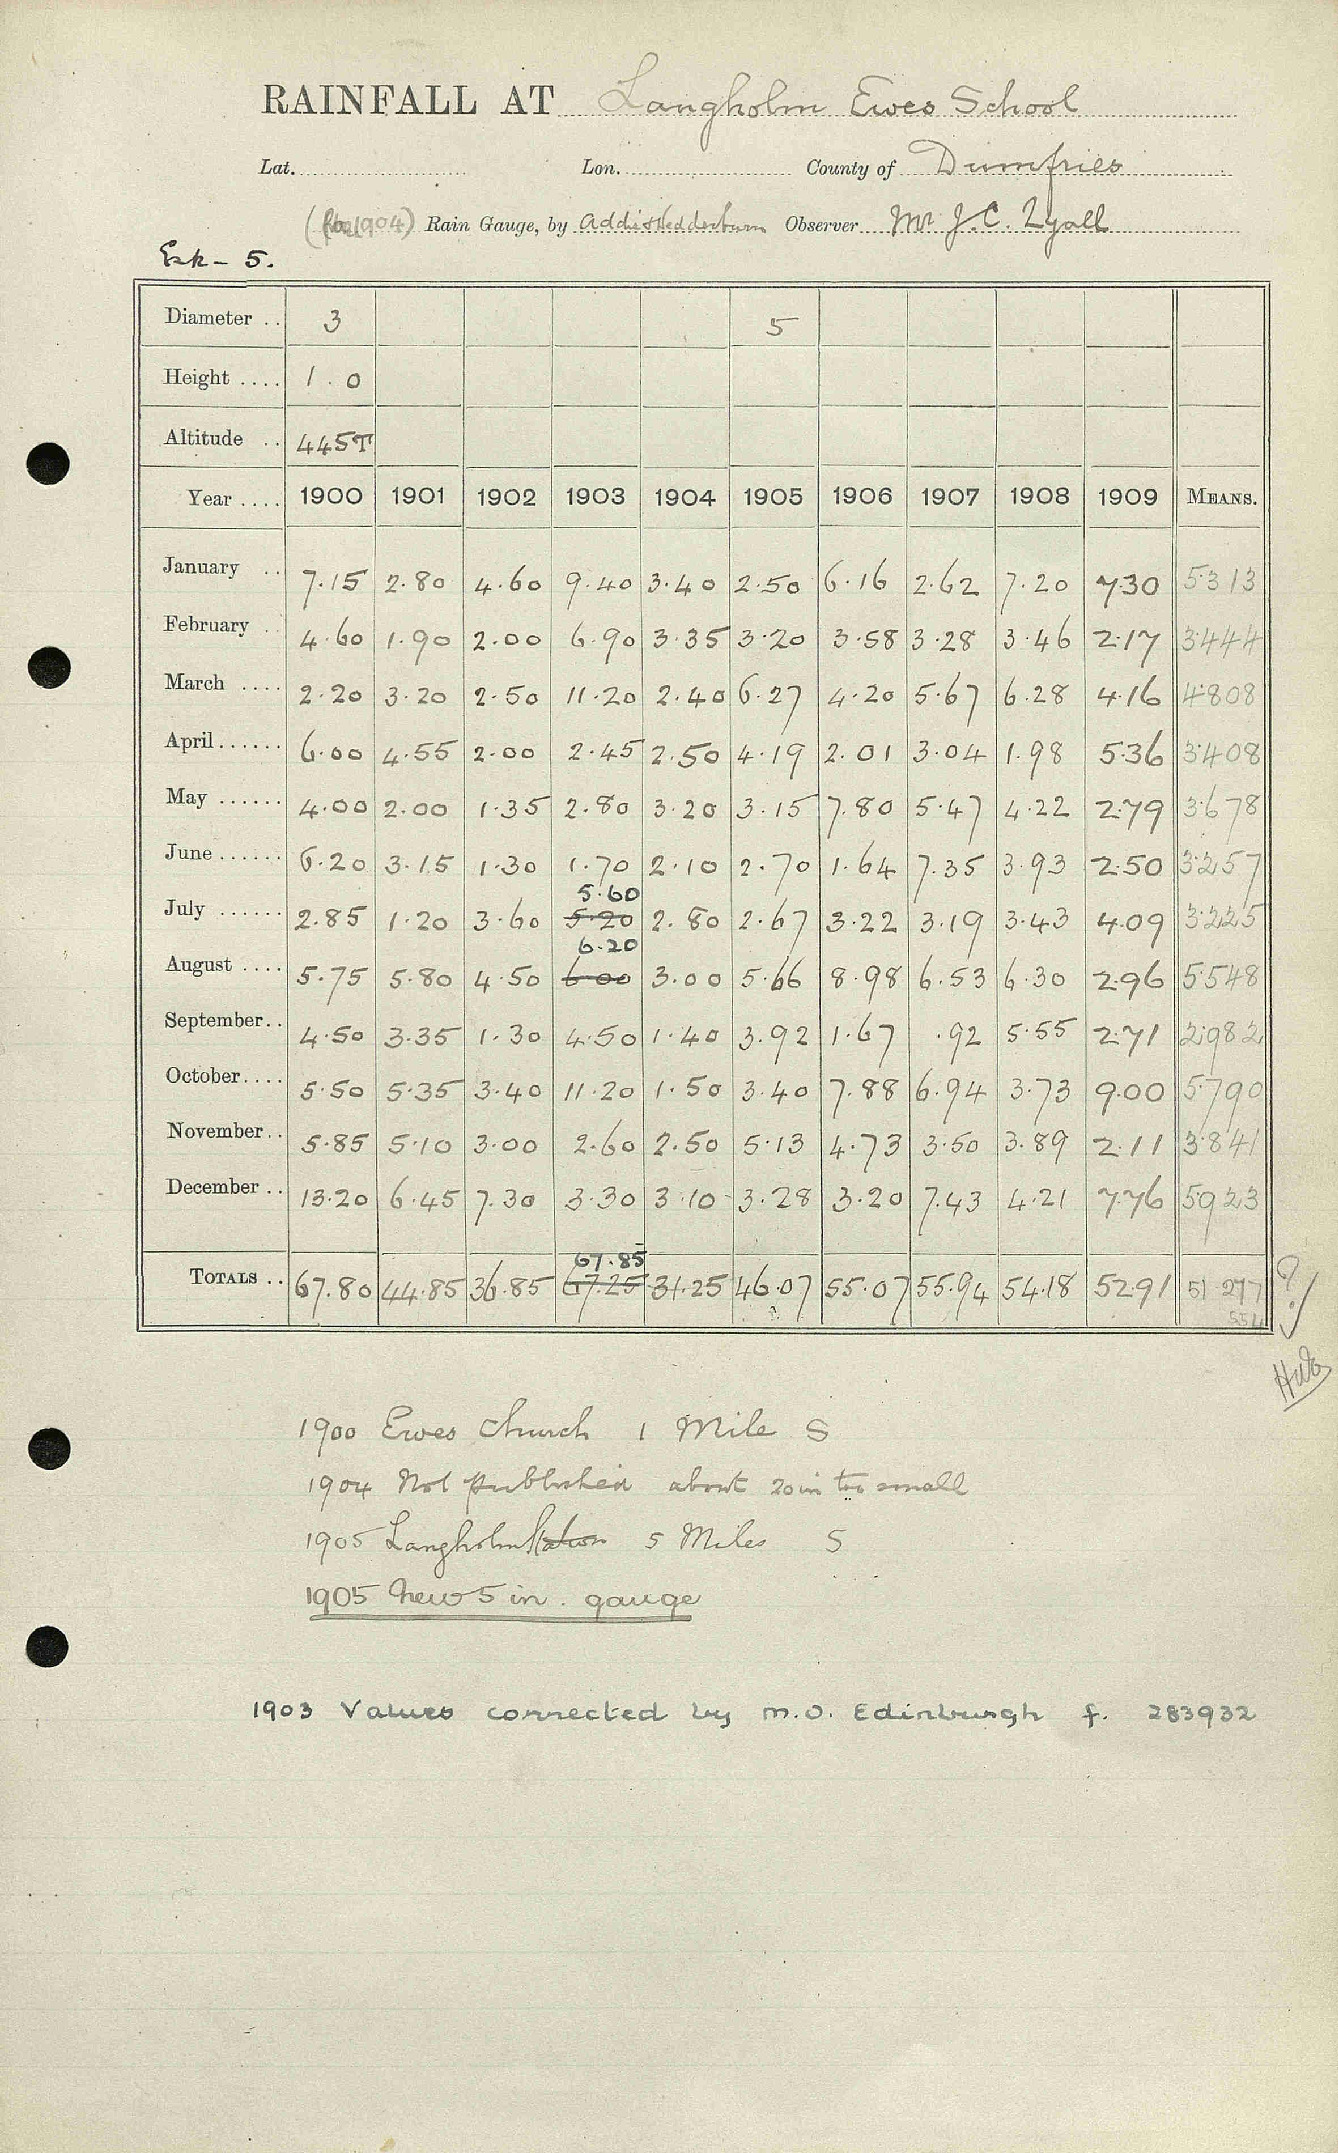 RAINFALL AT Langholm Ewes School
Lat. Lon. County of Dumfries
1904) Rain Gauge, by Addis & Hedderburn Observer Mr J. C. Lyall
Esk - 5.
Diameter .. 3 5
Height .... 1.0
Altitude .. 445T
Year .... 1900 1901 1902 1903 1904 1905 1906 1907 1908 1909 MEANS.
January .. 7.15 2.80 4.60 9.40 3.40 2.50 6.16 2.62 7.20 7.30 5.313
February .. 4.60 1.90 2.00 6.90 3.35 3.20 3.58 3.28 3.46 2.17 3.444
March .... 2.20 3.20 2.50 11.20 2.40 6.27 4.20 5.67 6.28 4.16 4.808
April...... 6.00 4.55 2.00 2.45 2.50 4.19 2.01 3.04 1.98 5.36 3.408
May ...... 4.00 2.00 1.35 2.80 3.20 3.15 7.80 5.47 4.22 2.79 3.678
June...... 6.20 3.15 1.30 1.70 2.10 2.70 1.64 7.35 3.93 2.50 3.257
5.60
July ...... 2.85 1.20 3.60 5.20 2.80 2.67 3.22 3.19 3.43 4.09 3.225
6.20
August .... 5.75 5.80 4.50 6.00 3.00 5.66 8.98 6.53 6.30 2.96 5.548
September.. 4.50 3.35 1.30 4.50 1.40 3.92 1.67 .92 5.55 2.71 2.982
October.... 5.50 5.35 3.40 11.20 1.50 3.40 7.88 6.94 3.73 9.00 5.790
November.. 5.85 5.10 3.00 2.60 2.50 5.13 4.73 3.50 3.89 2.11 3.841
December .. 13.20 6.45 7.30 3.30 3.10 3.28 3.20 7.43 4.21 7.76 5.923
67.85
TOTALS .. 67.80 44.85 36.85 67.25 31.25 46.07 55.07 55.94 54.18 52.91 51.217 ?
1900 Ewes Church 1 Mile S
1904 Not published about 20 in too small
1905 Langholm Station 5 Miles S
1905 New 5 in. gauge
1903 Values corrected by M.O. Edinburgh f. 283932